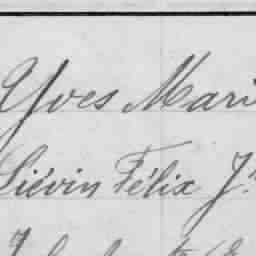 Yves Mari
Liévin Félix J.